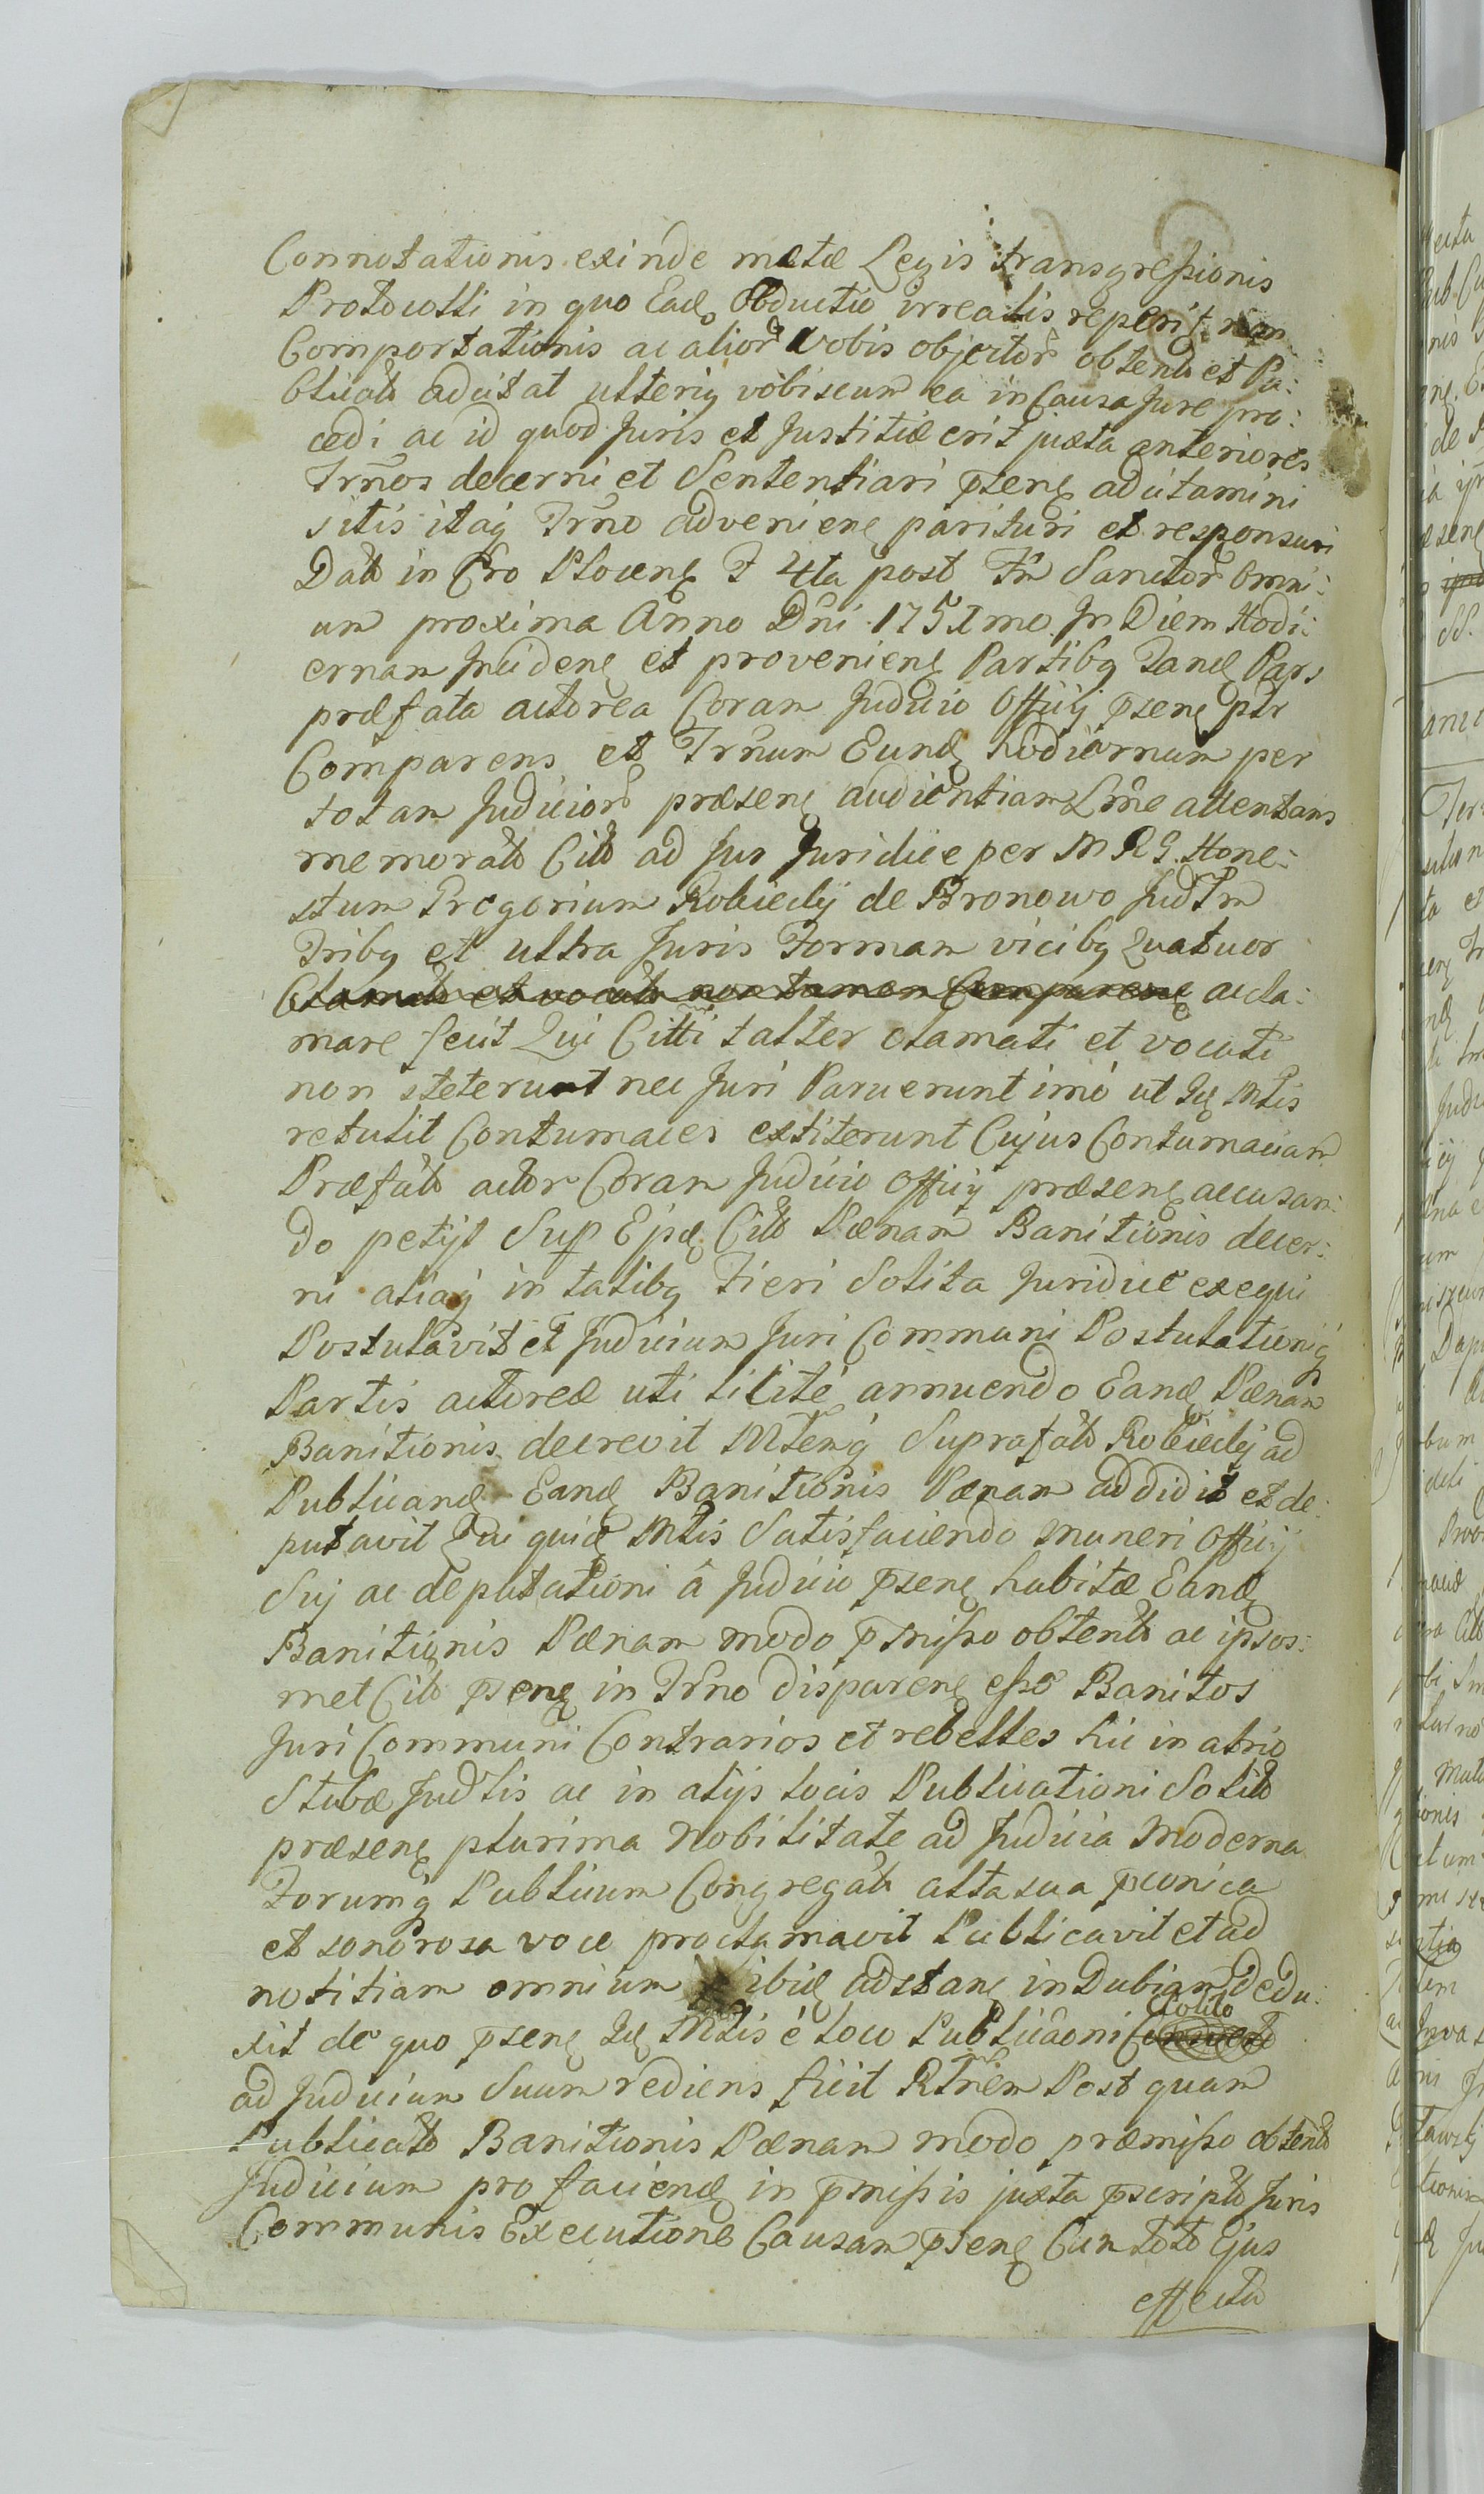 Connotationis exinde mætæ Legis transgressionis
Protocolli in quo Eadę Obductio irrealis reperit non
Comportationis ac alior̃ Vobis objector̃ obtent̃ et Pu:
blicat̃ adcitat ulteriq vobiscum ea in Causa Jure pro:
cedi ac id quod Juris et Justitiæ erit juxta anteriores
Trños decerni et Sententiari p̄senę adcitamini
sitis itaq Trño advenienę parituri et responsuri
Dat̃ in Cro Plocenę F 4ta post Fm̃ Sanctor̃ Omni:
um proxima Anno Dñi 1751mo. In Diem Hodi:
ernam Incidenę et provenienę Partibq Tandę Pars
præfata actorea Coram Judicio Officij p̄senę ptr
Comparens et Trñum Eundę hodiernum per
totam Judicior̃ præsenę audientiam Lm̃e attentans
memorat̃ Cit̃ ad Jus Juridice per M R G. Hone:
stum Gregorium Kobiedij de Bronowo Jud Tm̃
Tribq et ultra Juris Formam vicibq Quatuor
Clamat̃ et vocat̃ non tamen Comparenę accla:
mare fecit Qui Citti talter clamati et vocati
non steterunt nec Juri Paruerunt imo ut Idę Mtis
retulit Contumaces extiterunt Cujus Contumaciam
Præfat̃ actor Coram Judicio Officij præsenę accusan:
do petijt Sup Ejsdę Cit̃ Pænam Banitionis decer:
ni aliaq in talibq Fieri Solita Juridice exequi
Postulavit et Judicium Juri Communi Postulationiq
Partis actoreæ uti licitę annuendo Eandę Pænam
Banitionis decrevit Mtemq Suprafat̃ Kobiedij ad
Publicandę Eandę Banitionis Pænam addidit et de:
putavit Qui quidę Mtis Satisfaciendo muneri Officij
Sui ac deputationi â Judicio p̄senę habitæ Eandę
Banitionis Pænam modo p̄misso obtent̃ ac ipsos:
met Cit̃ p̄senę in Trño disparenę esse Banitos
Juri Communi Contrarios et rebelles hic in atrio
Stubæ Judtlis ac in alijs locis Publicationi Solit̃
præsenę plurima Nobilitate ad Judicia Moderna
Forumq Publicum Congregat̃ alta sua p̄conica
et sonorosa voce proclamavit Publicavit et ad
notitiam omnium ibidę adstanę inDubiam dedu:
xit de quo p̄senę Idę Mtis é loco Publicaõni Consvet̃ Solito
ad Judicium Suum rediens fecit RTnẽm Post quam
Publicat̃ Banitionis Pænam modo præmisso obtent̃
Judicium pro faciendę in p̄missis juxta p̄script̃ Juris
Communis Executione Causam p̄senę Cum toto Ejus
effectu